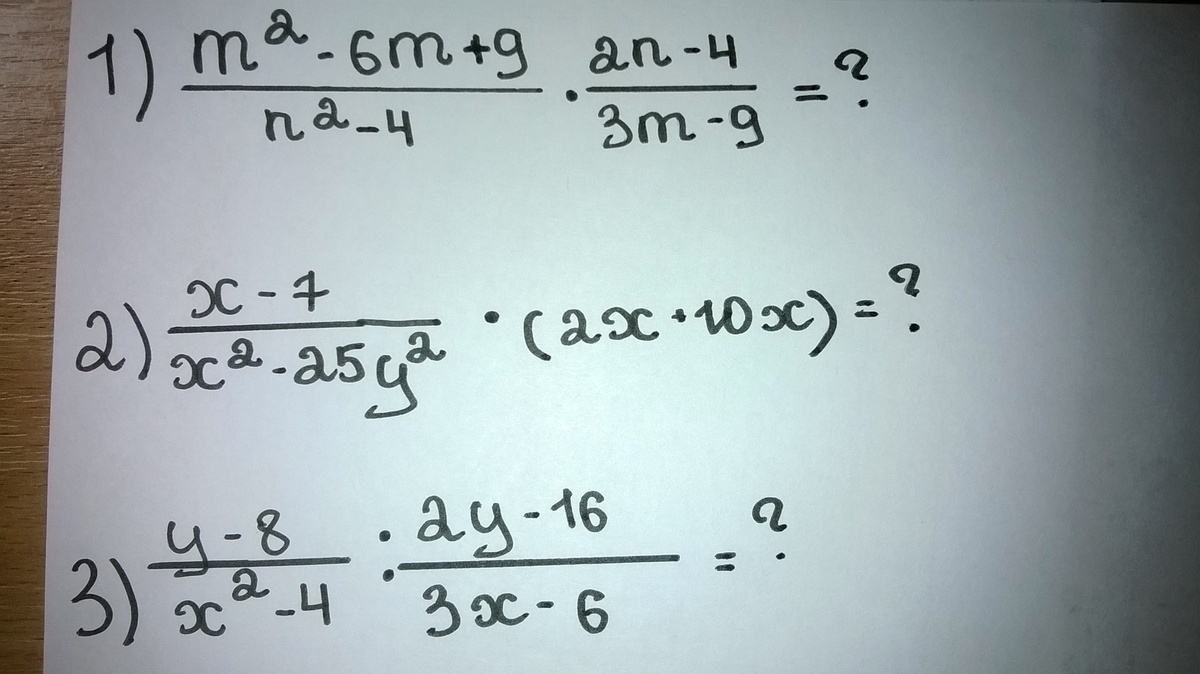 1) (m² - 6m + 9)/(n² - 4) · (2n - 4)/(3m - 9) = ?
2) (x - 7)/(x² - 25y²) · (2x + 10x) = ?
3) (y - 8)/(x² - 4) : (2y - 16)/(3x - 6) = ?